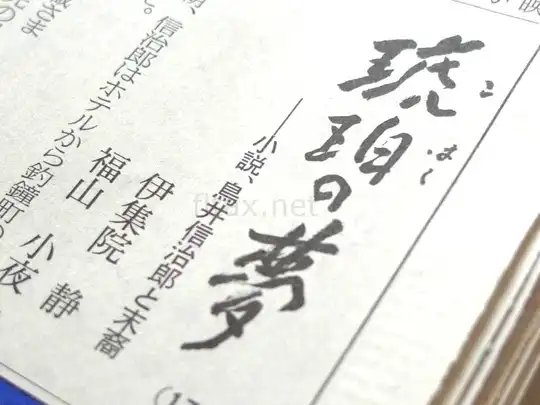 琥珀の夢
こはく
――小説、鳥井信治郎と末裔
伊集院 静
福山 小夜
(17
朝、信治郎はホテルから釣鐘町の
と。
さま